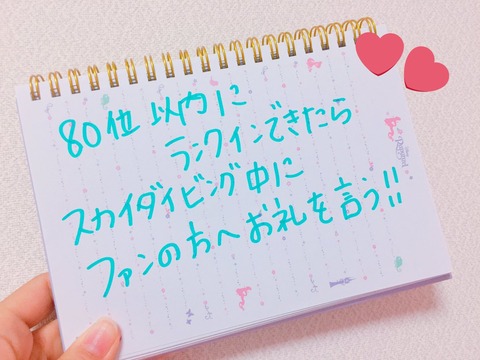 80位以内に
ランクインできたら
スカイダイビング中に
ファンの方へお礼を言う!!